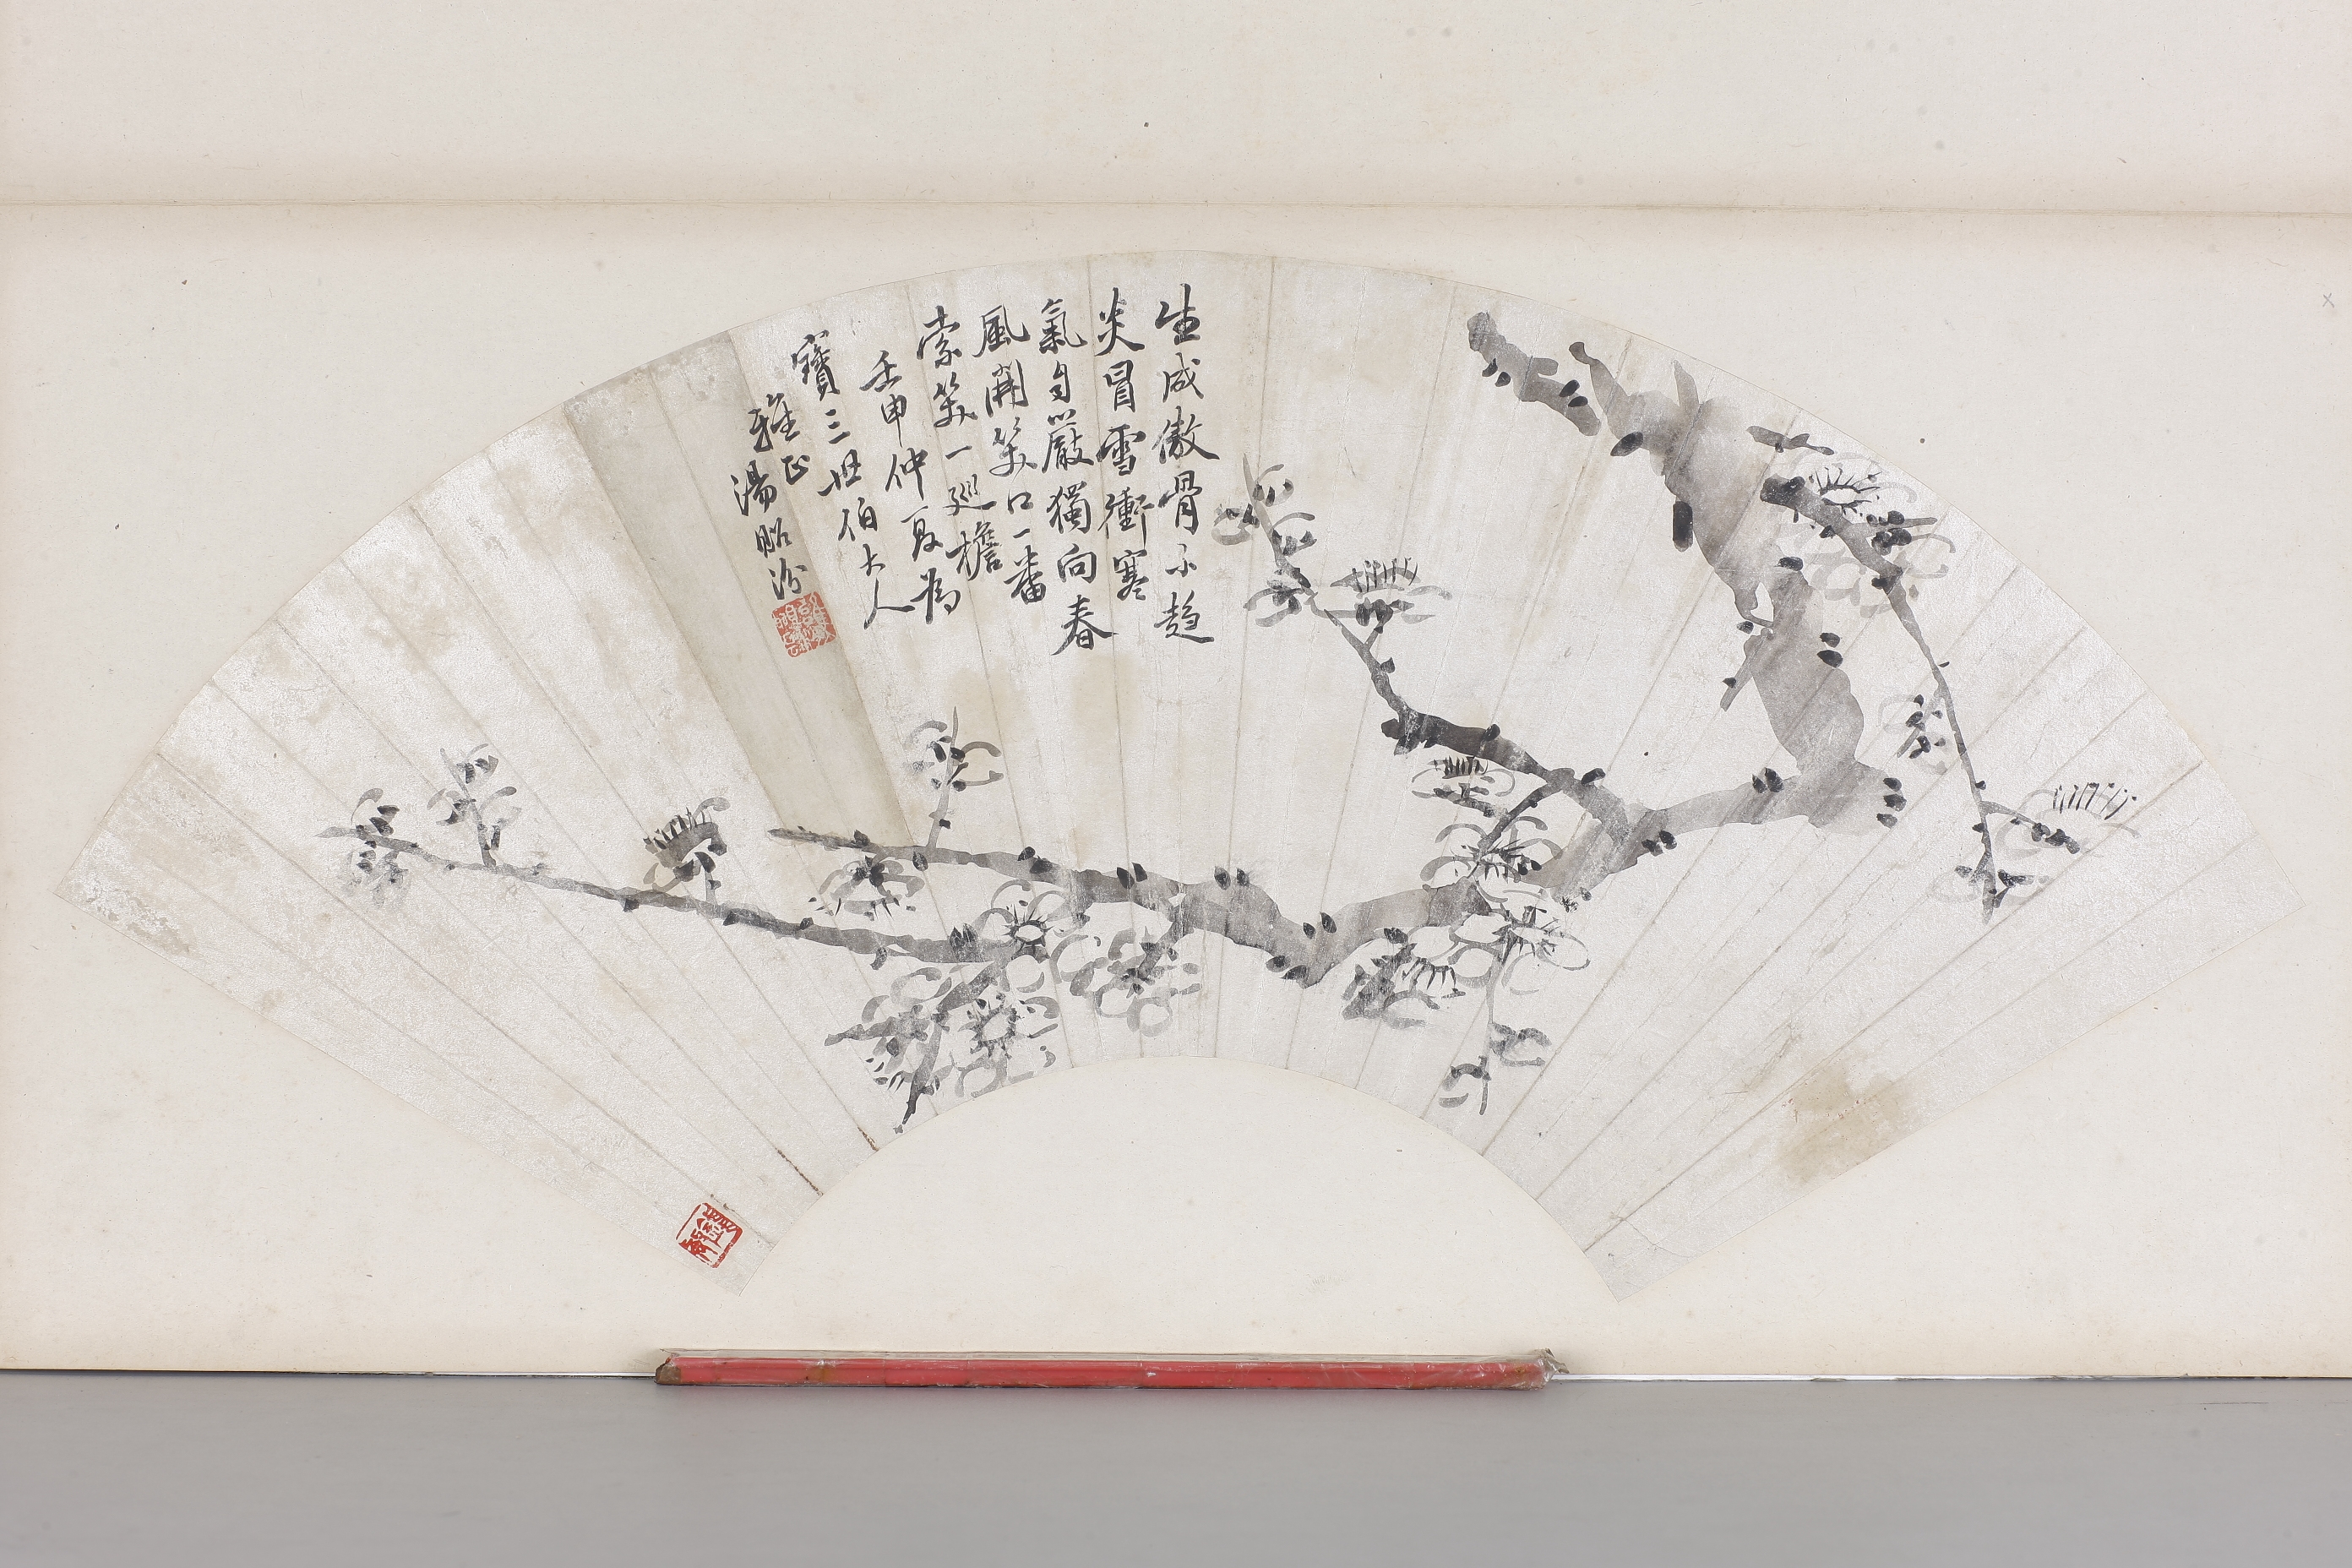 生成傲骨不趨
炎冒雪衝寒
氣自嚴獨向春
風開笑口一番
索笑一巡檐
壬申仲夏為
寶三世伯大人
雅正
湯昭汾